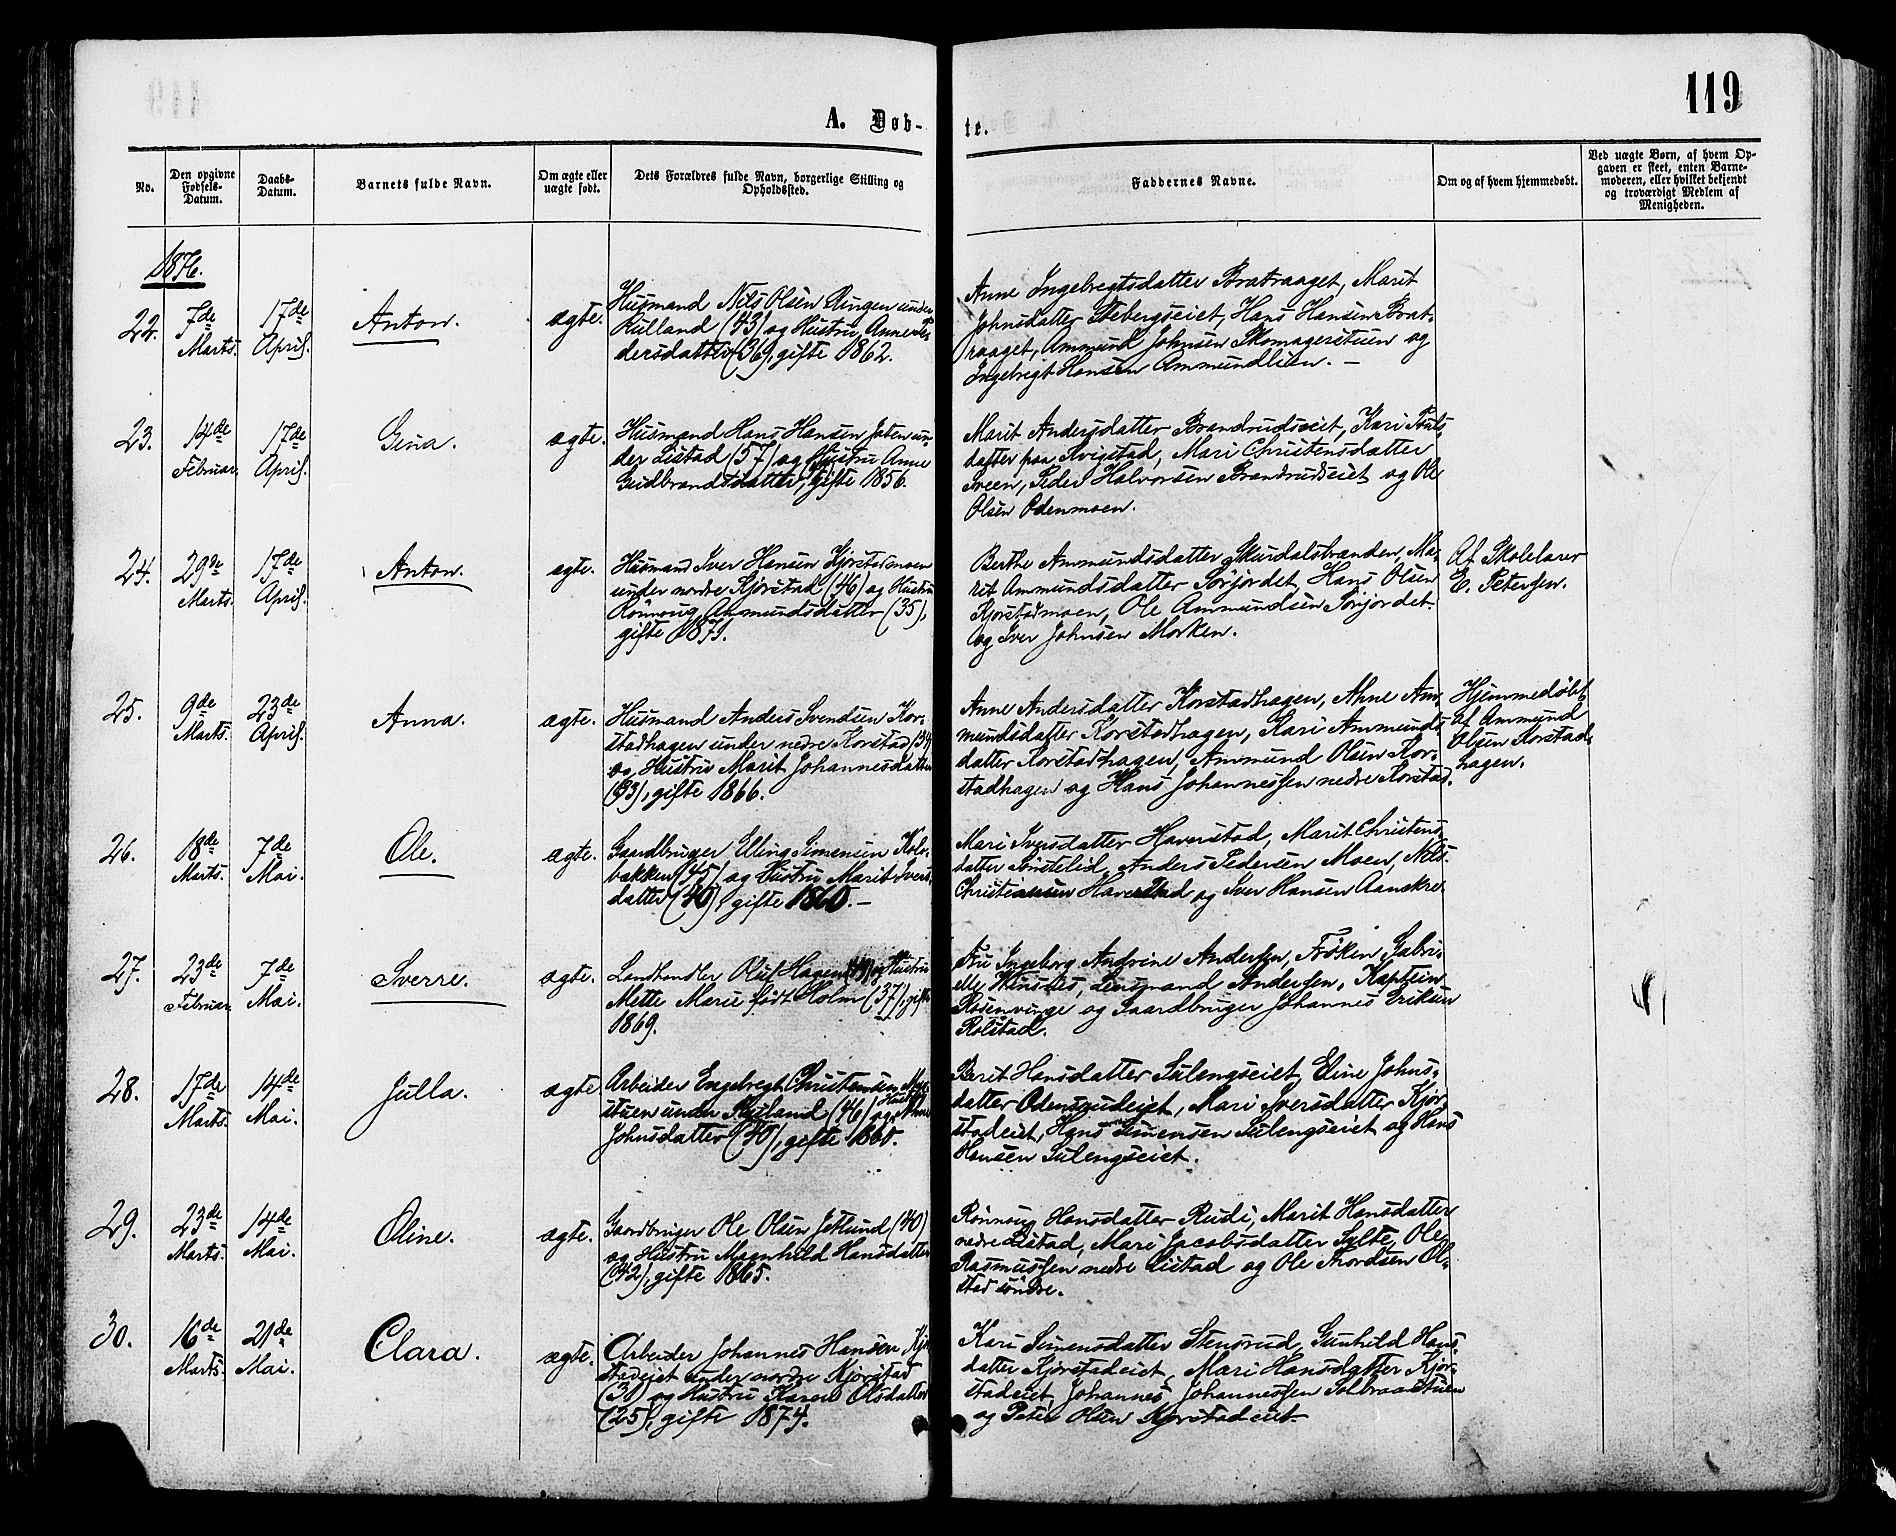 119
A. Døb-
te.
No.
Den opgivne
Fødsels-
Datum.
Daabs-
Datum.
Barnets fulde Navn.
Om ægte eller
uægte født.
Dets Forældres fulde Navn, borgerlige Stilling og
Opholdssted.
Faddernes Navne.
Om og af hvem hjemmedøbt.
Ved uægte Børn, af hvem Op-
gaven er skeet, enten Barne-
moderen, eller hvilket bekjendt
og troværdigt Medlem af
Menigheden.
1876.
22.
7de
Marts.
17de
April.
Anton.
ægte.
Husmand Nils Olsen Ringen under
Rulland (43) og Hustru Anne Pe-
dersdatter (36), gifte 1862.
Anne Ingebregtsdatter Bratraaget, Marit
Johnsdatter Stebergseiet, Hans Hansen Brat-
raaget, Ammund Johnsen Skomagerstuen og
Ingebregt Hansen Ammundlien. —
23.
14de
Februar.
17de
April.
Gina.
ægte.
Husmand Hans Hansen un-
der Listad (57) og Hustru Anne
Gudbrandsdatter, gifte 1856.
Marit Andersdatter Brandrudseiet, Kari Pauls-
datter paa Kvigstad, Mari Christensdatter
Sveen, Peder Halvorsen Brandrudseiet og Ole
Olsen Odenmoen.
24.
29de
Marts.
17de
April.
Anton.
ægte.
Husmand Iver Hansen Kjorstadmoen
under nordre Kjørstad (46) og Hustru
Rönnoug Ammundsdatter (35),
gifte 1871.
Berthe Ammundsdatter Skurdalsbrænden, Ma-
rit Ammundsdatter Sørjordet, Hans Olsen
Kjorstadmoen, Ole Ammundsen Sørjordet
og Iver Johnsen Morken.
Af Skolelærer
E. Petersen.
25.
9de
Marts.
23de
April.
Anna.
ægte.
Husmand Anders Svendsen Kor-
stadhagen under nedre Korstad (34
og Hustru Marit Johannesdatter
(33), gifte 1866.
Anne Andersdatter Korstadhagen, Anne Am-
mundsdatter Korstadhagen, Kari Ammunds-
datter Korstadhagen, Ammund Olsen Kor-
stadhagen og Hans Johannessen nedre Korstad.
Hjemmedøbt
af Ammund
Olsen Korstad-
hagen.
26.
18de
Marts.
7de
Mai.
Ole.
ægte.
Gaardbruger Elling Simensen Kolo-
bakken (45) og Hustru Marit Ivers-
datter (40), gifte 1860. —
Mari Iversdatter Haverstad, Marit Christens-
datter Sørstelid, Anders Pedersen Moen, Nils
Christiansen Haverstad og Iver Hansen Aanekre.
27.
23de
Februar.
7de
Mai.
Sverre.
ægte.
Landhandler Oluf Hagen og Hustru
Mette Marie født Holm (37), gifte
1869.
Fru Ingeborg Andrine Andersen, Frøken Gabri-
elle, Lensmand Andersen, Kaptein
Rosenvinge og Gaardbruger Johannes Eriksen
Rolstad.
28.
17de
Marts.
14de
Mai.
Julla.
ægte.
Arbeider Engebregt Christensen
stuen under Rulland (46) og Hustru Anne
Johnsdatter (40), gifte 1860.
Berit Hansdatter Sulengseiet, Eline Johns-
datter Odensrudeiet, Mari Iversdatter Kjør-
stadeiet, Hans Simensen Sulengseiet og Hans
Hansen Sulengseiet.
29.
23de
Marts.
14de
Mai.
Oline.
ægte.
Gaardbruger Ole Olsen Jetlund (40)
og Hustru Magnhild Hansdatter
(42), gifte 1865.
Rönnoug Hansdatter Rudi, Marit Hansdatter
nedre Listad, Mari Jacobsdatter Sylte, Ole
Rasmussen nedre Listad og Ole Thordsen Ol-
stad søndre.
30.
16de
Marts.
21de
Mai.
Clara.
ægte.
Arbeider Johannes Hansen Kjør-
stadeiet under nordre Kjørstad
(30 og Hustru Karen Olsdatter
(25), gifte 1874.
Kari Simensdatter Stensrud, Gunhild Hans-
datter Kjørstadeiet, Mari Hansdatter Kjør-
stadeiet, Johannes Johannessen Solbraastuen
og Peter Olsen Kjørstadeiet